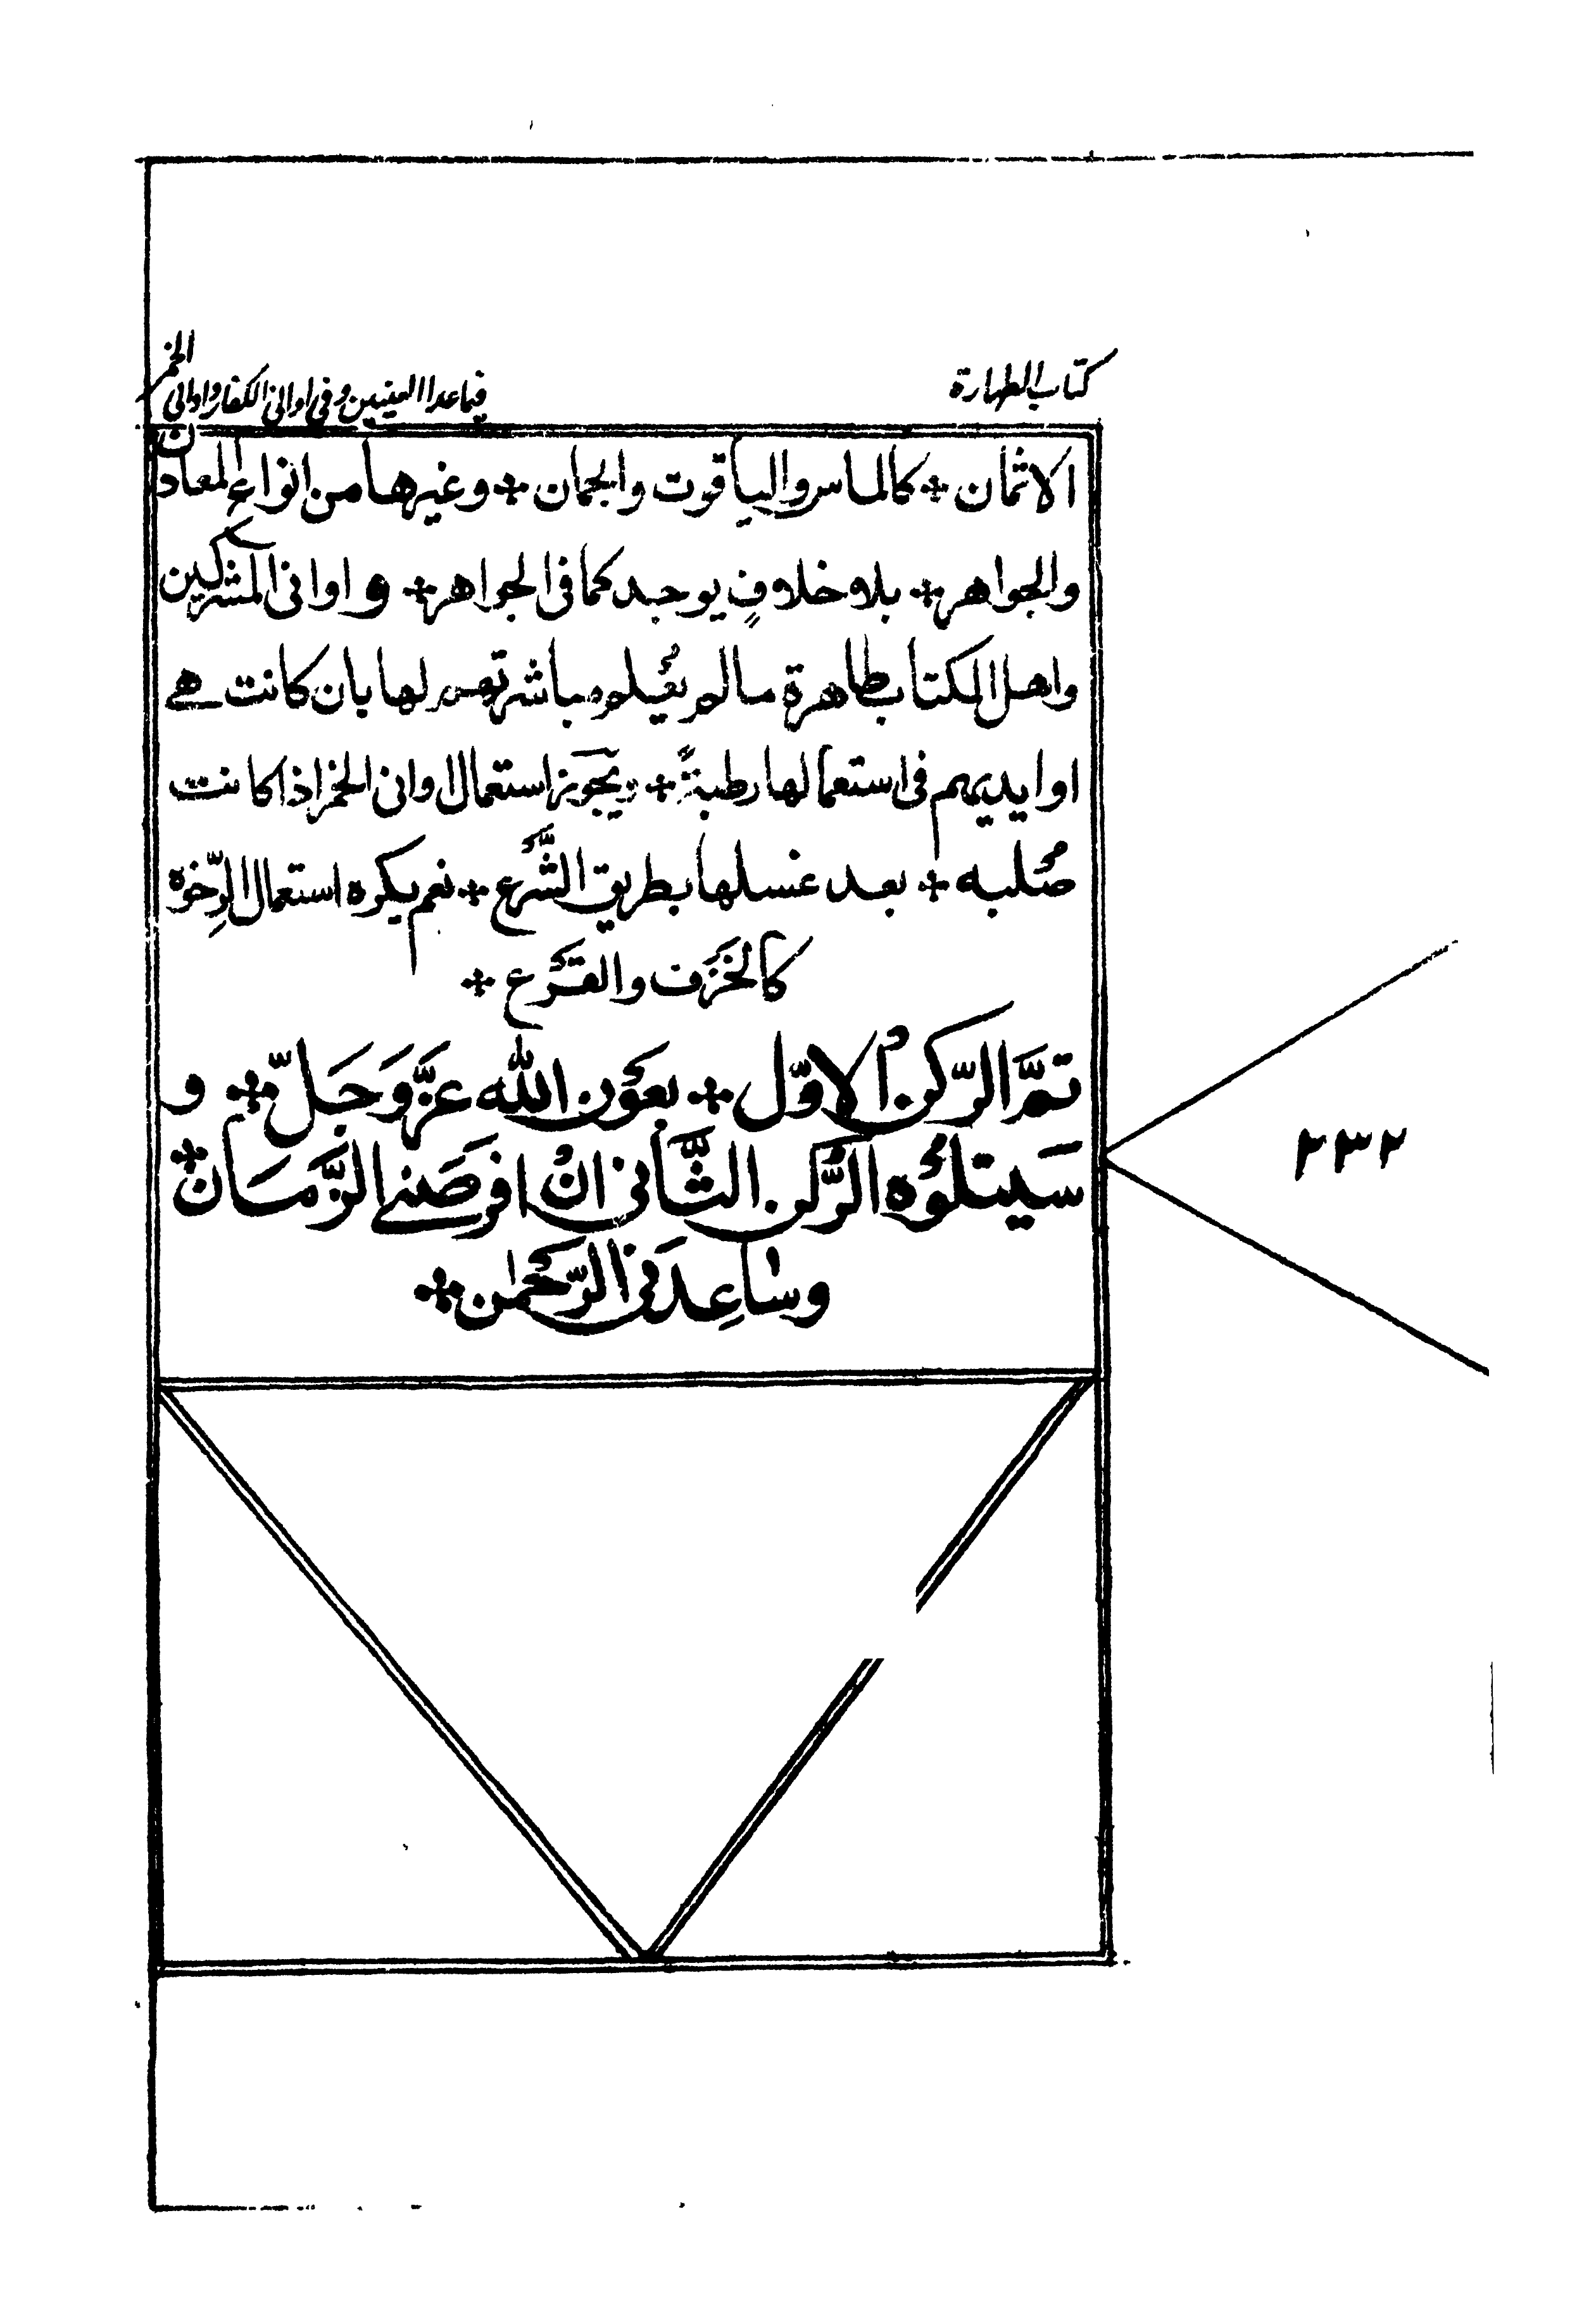 كتاب الطهارة
فيما عدا العينين وفي اواني الكفار واواني الخمر
الاثمان ٭ كالماس والياقوت والجمان ٭ وغيرها من انواع المعادن
والجواهر ٭ بلا خلافٍ يوجد كما فى الجواهر ٭ و اوانى المشركين
واهل الكتاب طاهرة مالم يُعلم مباشرتهم لها بان كانت هے
او ايديهم فى استعمالها رطبةً ٭ ويَجوز استعمال اوانى الخمر اذا كانت
صُلبه ٭ بعد غسلها بطريق الشَّرع ٭ نعم يكره استعمال الرِّخوة
كالخَزَف والقَرْع ٭
تمَّ الرّكنُ الاوّل ٭ بعَوْن اللّه عزَّوَجَلّ ٭ و
سَيتلُوْه الرُّكن الثَّانى انْ افرَصَنے الزَّمَان ٭
وسَاعِدَنى الرّحْمٰن ٭
٢٣٢